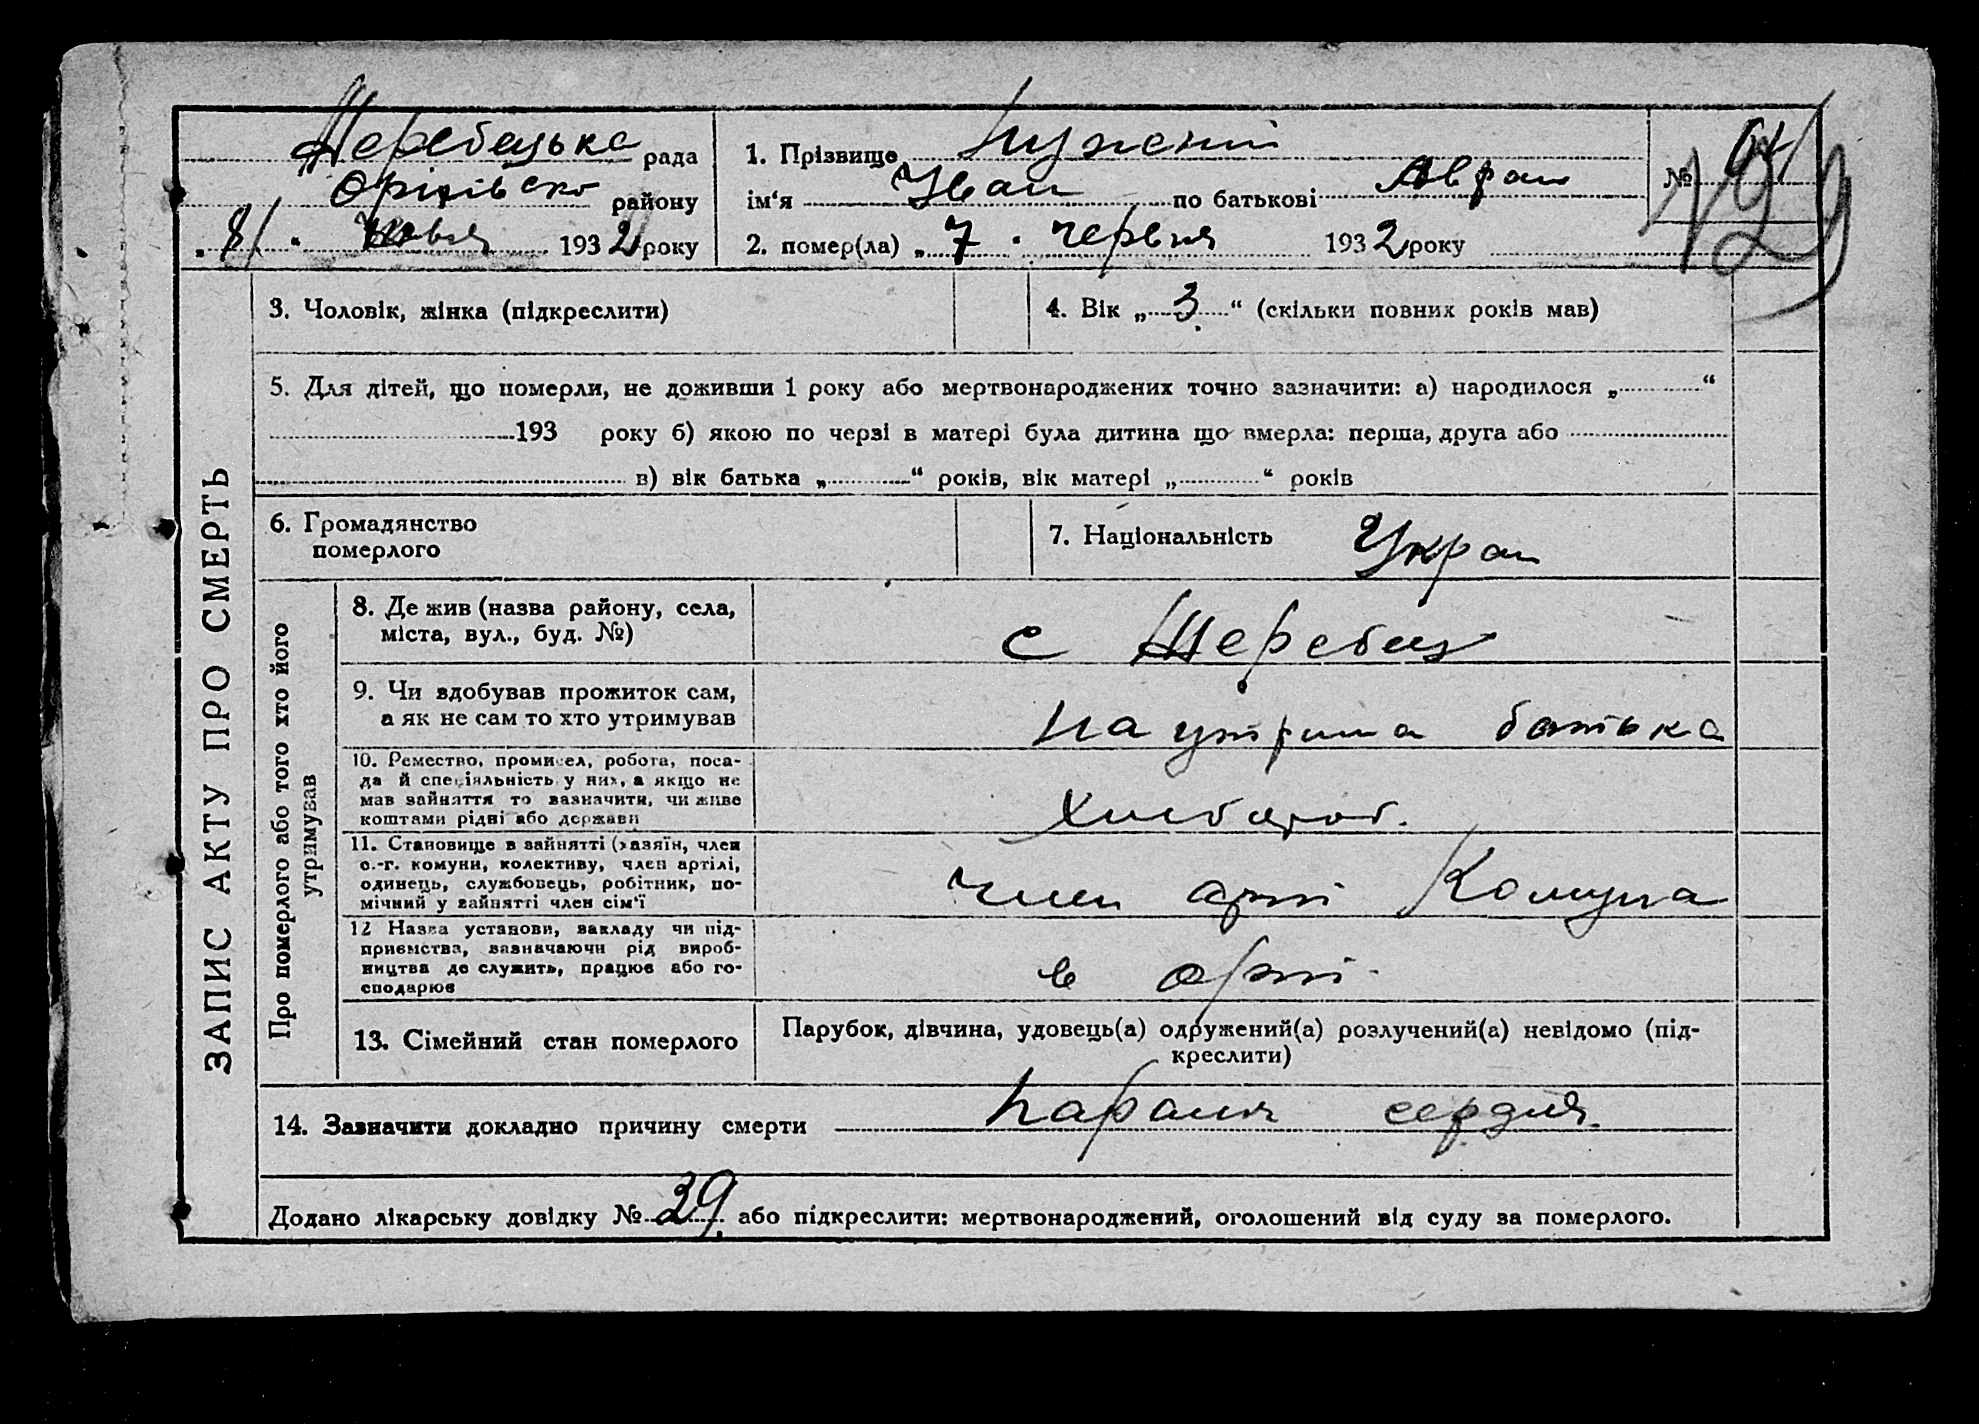 Жеребецька рада
Оріхівсько району
„8“ 1932 року
1. Прізвище Нужний
ім‘я Иван по батькові Авра
№ 64
129
2. помер(ла) „7“ червня 1932 року
ЗАПИС АКТУ ПРО СМЕРТЬ
3. Чоловік, жінка (підкреслити)
4. Вік „3“ (скільки повних років мав)
5. Для дітей, що померли, не доживши 1 року або мертвонароджених точно зазначити: а) народилося „ “
193 року б) якою по черзі в матері була дитина що вмерла: перша, друга або
в) вік батька „ “ років, вік матері „ “ років
6. Громадянство
померлого
7. Національність Укра
Про померлого або того хто його
утримував
8. Де жив (назва району, села,
міста, вул., буд. №)
с Жеребец
9. Чи здобував прожиток сам,
а як не сам то хто утримував
На утрима батька
10. Ремество, промисел, робота, поса-
да й спеціяльність у них, а якщо не
мав зайняття то зазначити, чи живе
коштами рідні або держави
Хлебороб.
11. Становище в зайнятті (хазяїн, член
с.-г. комуни, колективу, член артілі,
одинець, службовець, робітник, по-
мічний у зайнятті член сім‘ї
член арті Комуна
12 Назва установи, закладу чи під-
приємства, зазначаючи рід вироб-
ництва де служить, працює або го-
сподарює
в арті
13. Сімейний стан померлого
Парубок, дівчина, удовець(а) одружений(а) розлучений(а) невідомо (під-
креслити)
14. Зазначити докладно причину смерти сердця
Додано лікарську довідку № 39 або підкреслити: мертвонароджений, оголошений від суду за померлого.